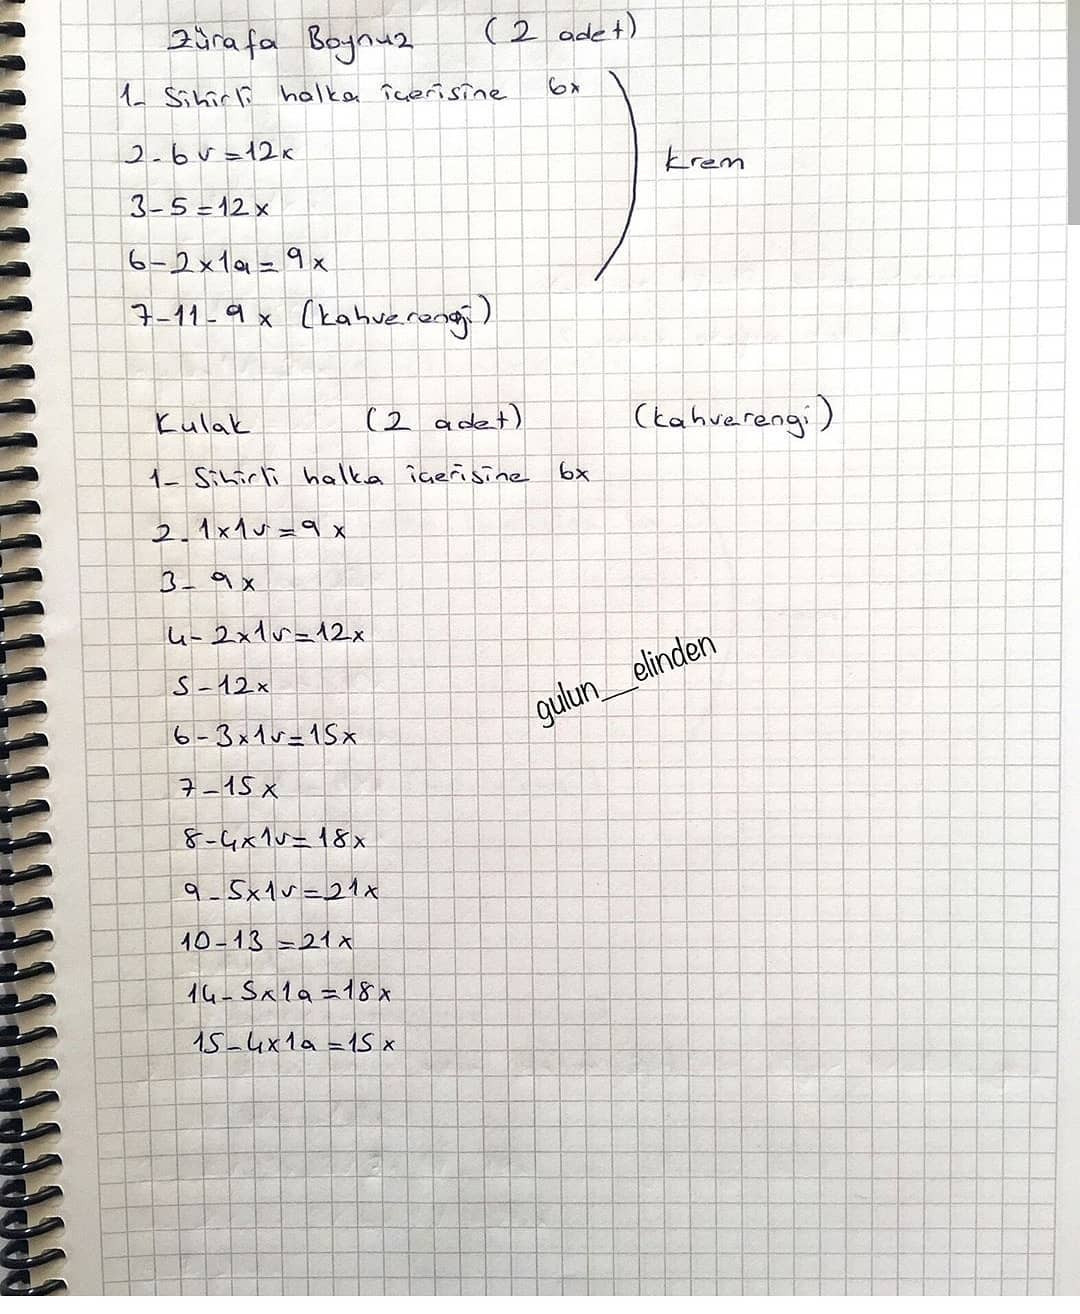 Zürafa Boynuz (2 adet)
1- Sihirli halka içerisine 6x
2-6v=12x
3-5=12x
Krem
6-2x1a=9x
7-11-9x (kahverengi)
Kulak (2 adet) (kahverengi)
1- Sihirli halka içerisine 6x
2-1x1v=9x
3-9x
4-2x1v=12x
5-12x
6-3x1v=15x
7-15x
8-4x1v=18x
9-5x1v=21x
10-13=21x
14-5x1a=18x
15-4x1a=15x
gulun__elinden